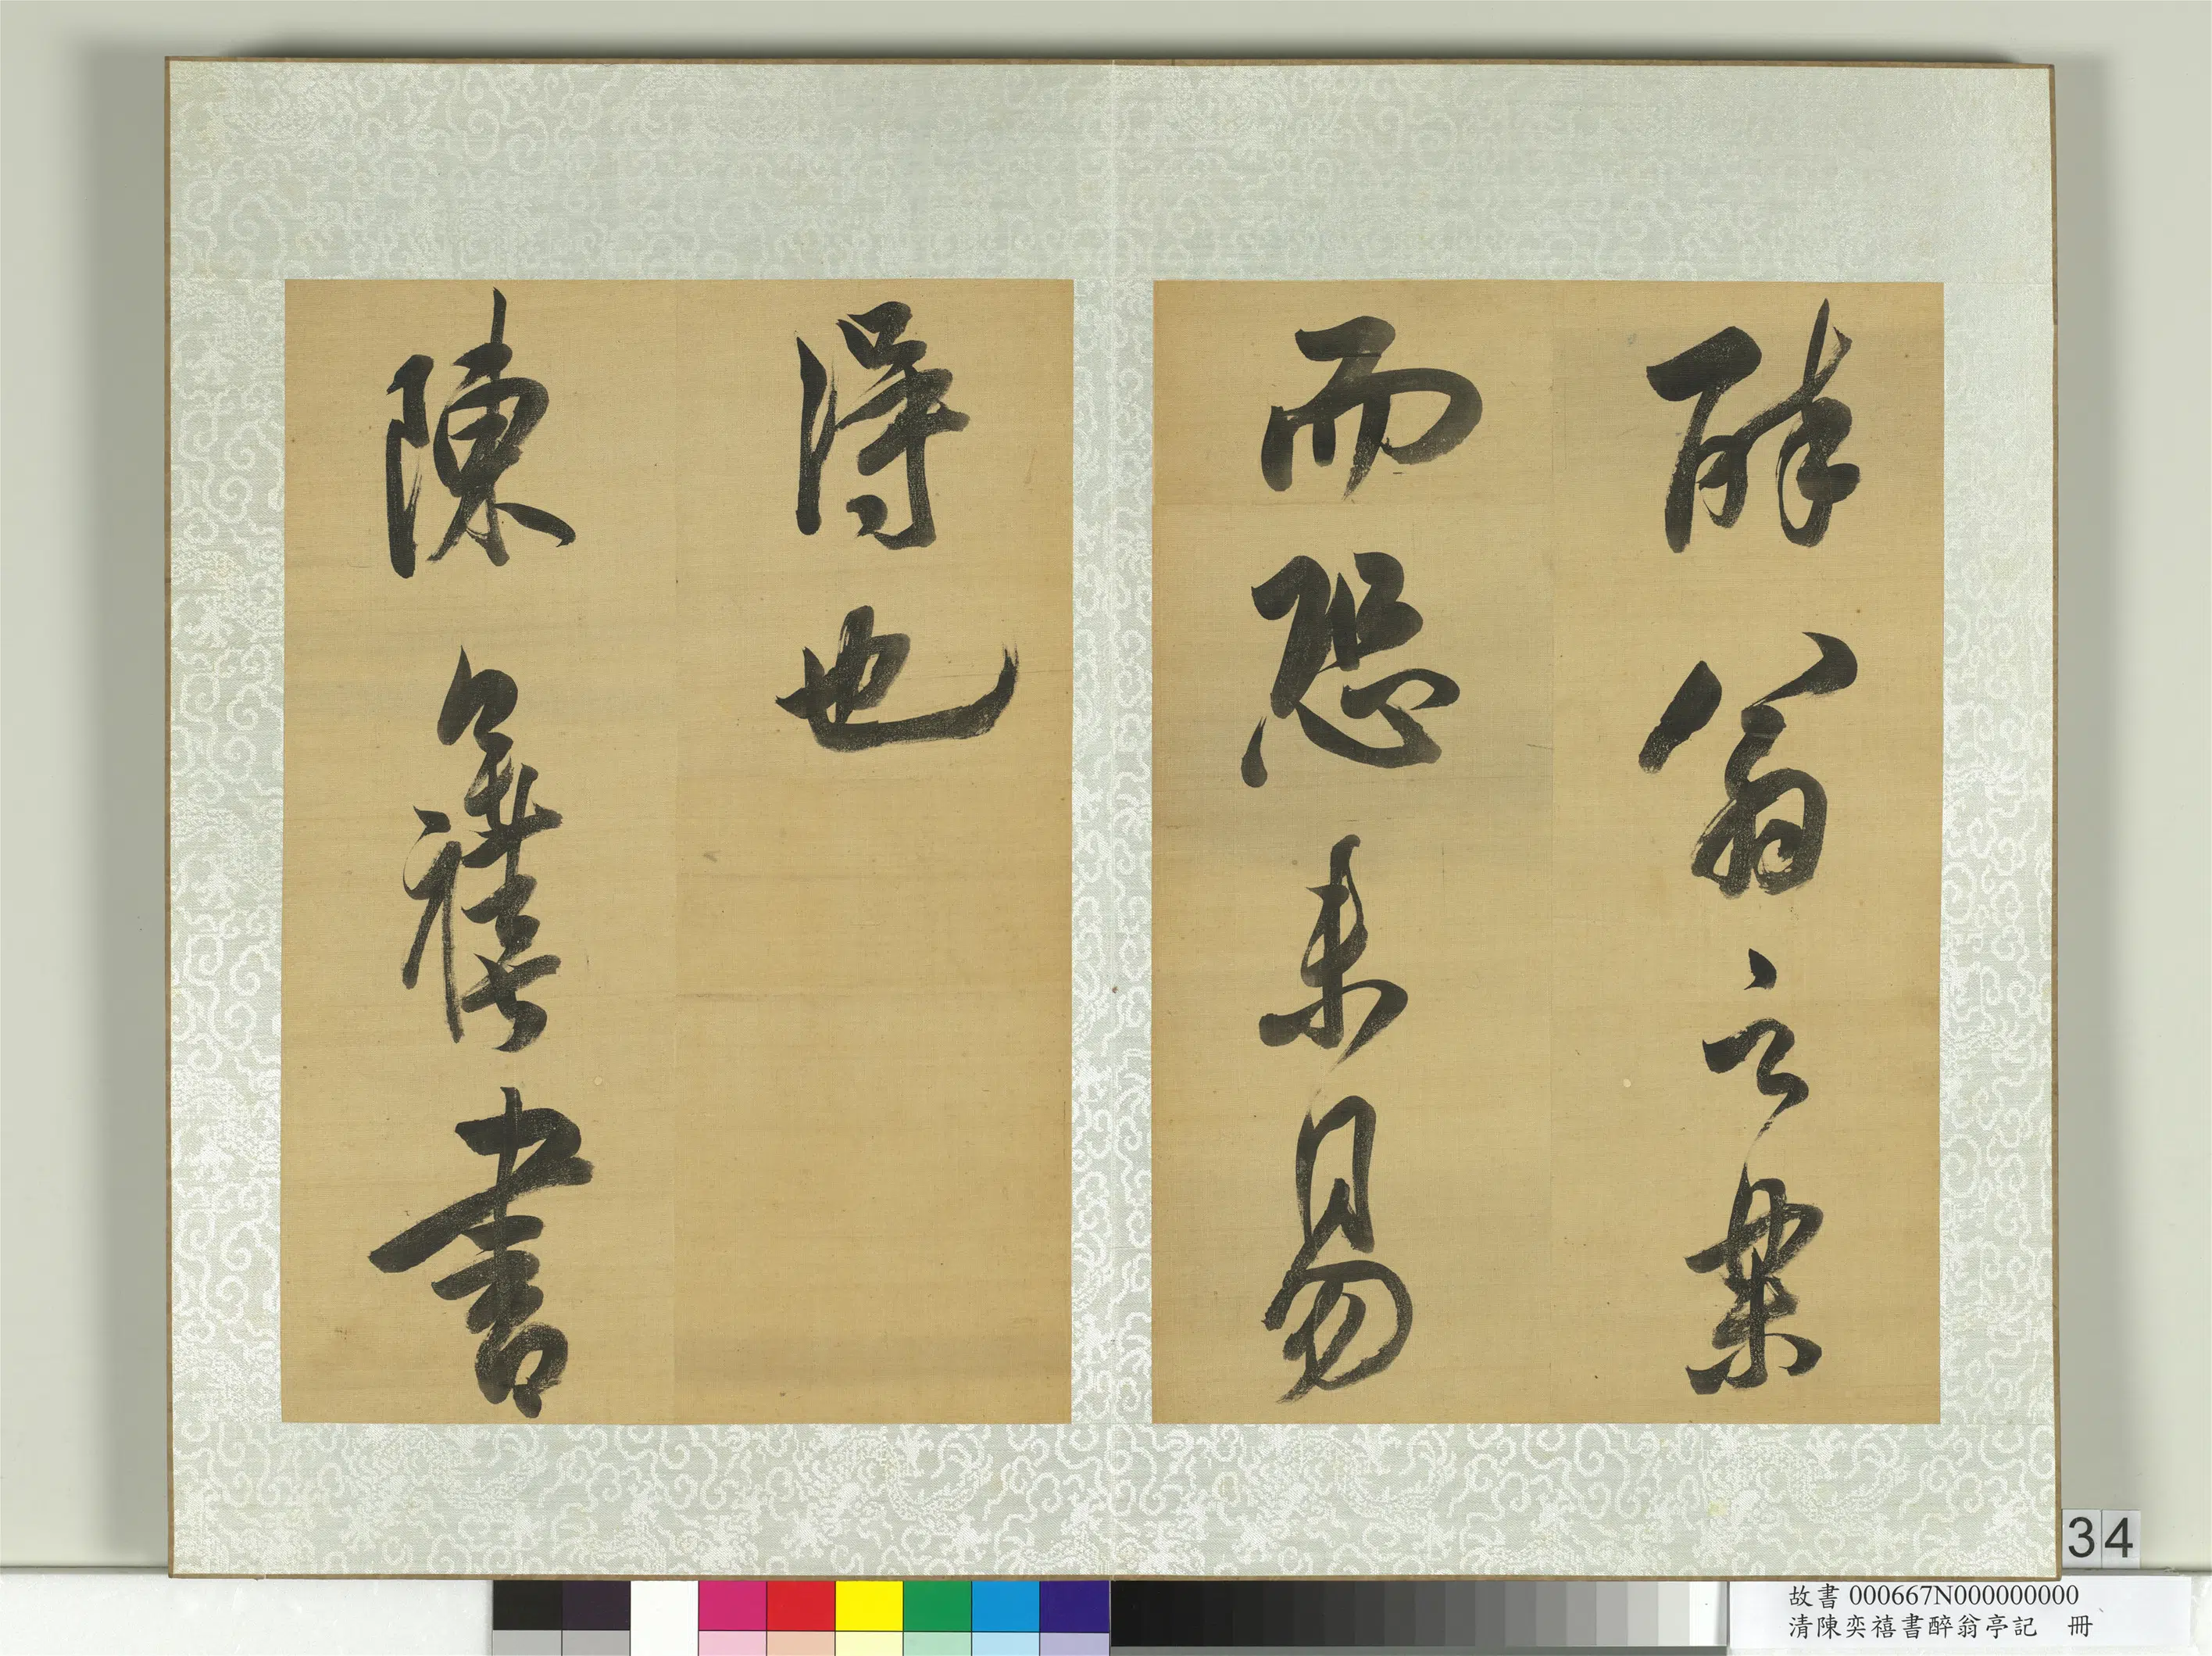 醉翁之樂
而恐未易
得也
陳奕禧書
34
故書 000667N000000000
清陳奕禧書醉翁亭記　冊